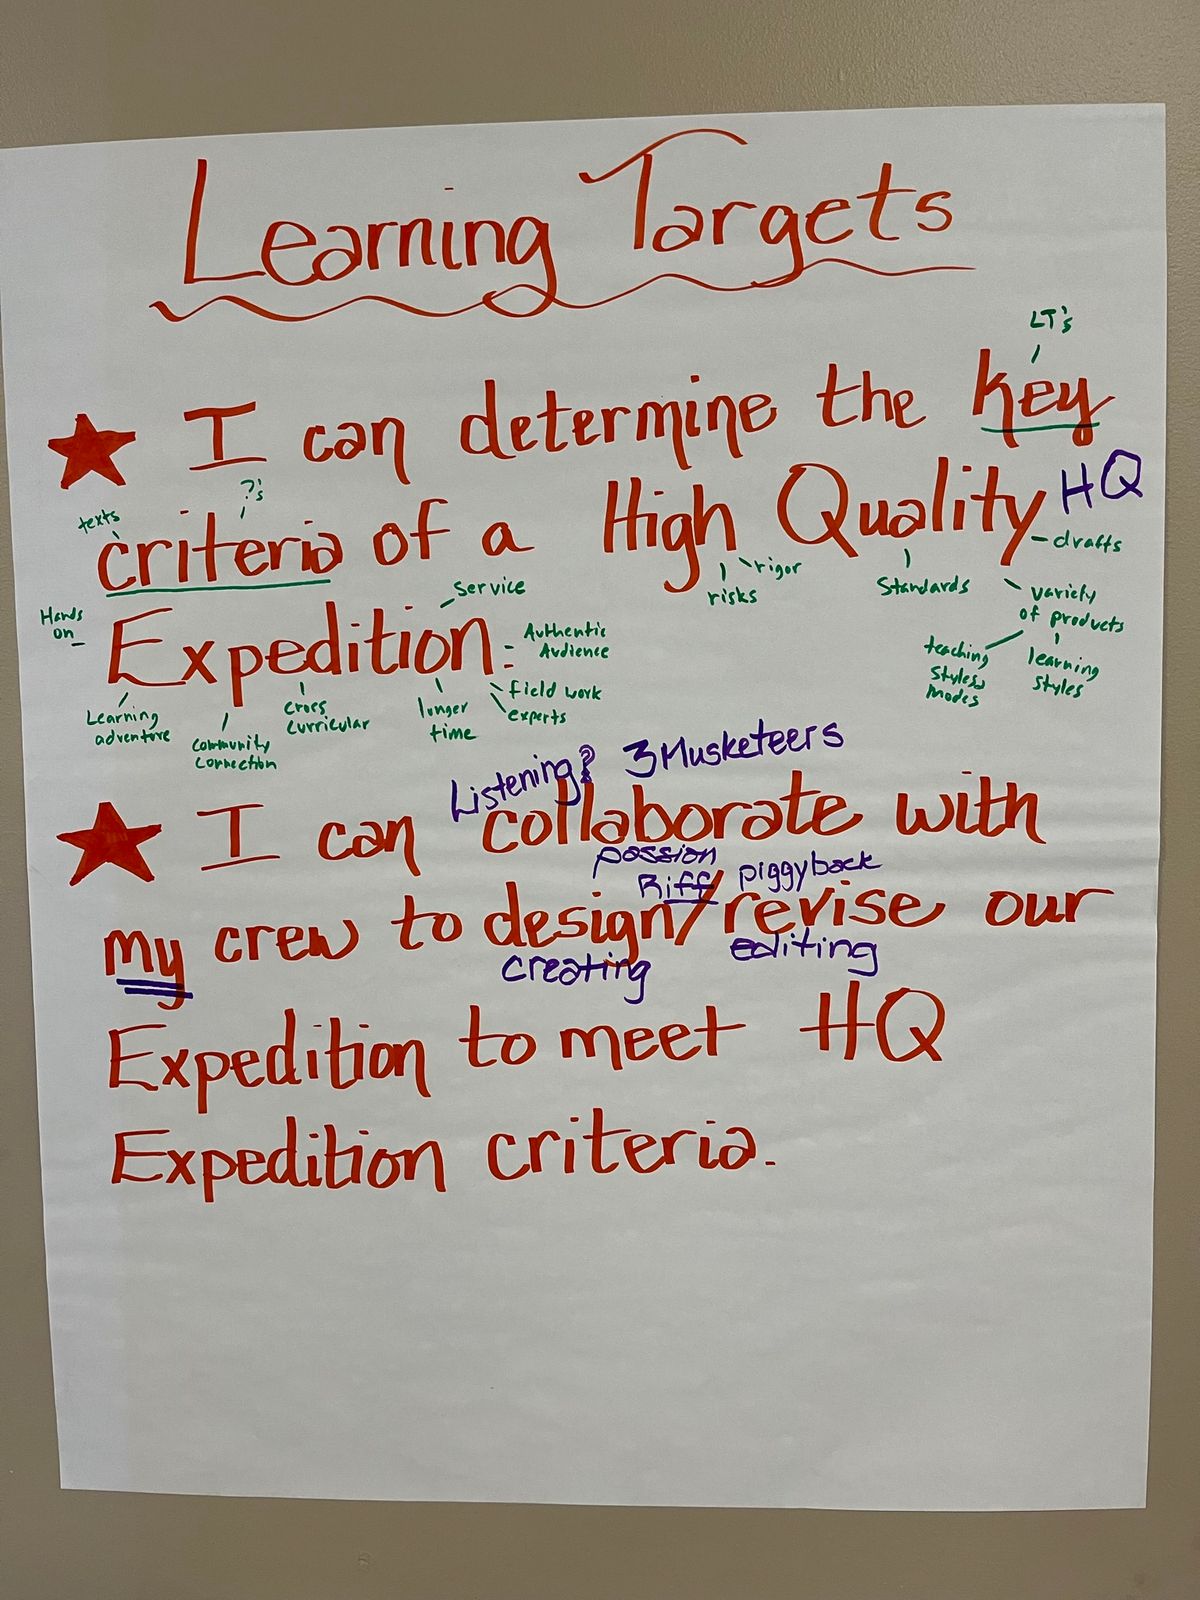 Learning Targets
LT's
I can determine the key
texts
?'s
criteria of a High Quality HQ
drafts
rigor
risks
Standards
variety
of products
teaching
styles
modes
learning
styles
Hands
on
Service
Expedition:
Authentic
Audience
field work
experts
Learning
adventure
community
connection
cross
curricular
longer
time
Listening? 3 Musketeers
I can collaborate with
passion
Riff piggyback
my crew to design/revise our
creating
editing
Expedition to meet HQ
Expedition criteria.